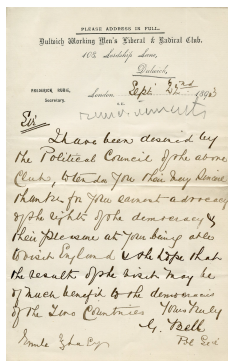 PLEASE ADDRESS IN FULL.
Dulwich Working Men's Liberal & Radical Club.
108 Lordship Lane,
Dulwich,
FREDERICK
Secretary.
London Sept 1893
Sir
I have been desired by
the Political Council of the above
Club, to tender you their very sincere
thanks for your earnest advocacy
of the rights of the democracy &
their pleasure at your being able
to visit England & the hope that
the result of the visit may be
of much benefit to the democracies
of the two Countries Yours truly
G. Bell
Emile Zola Esq